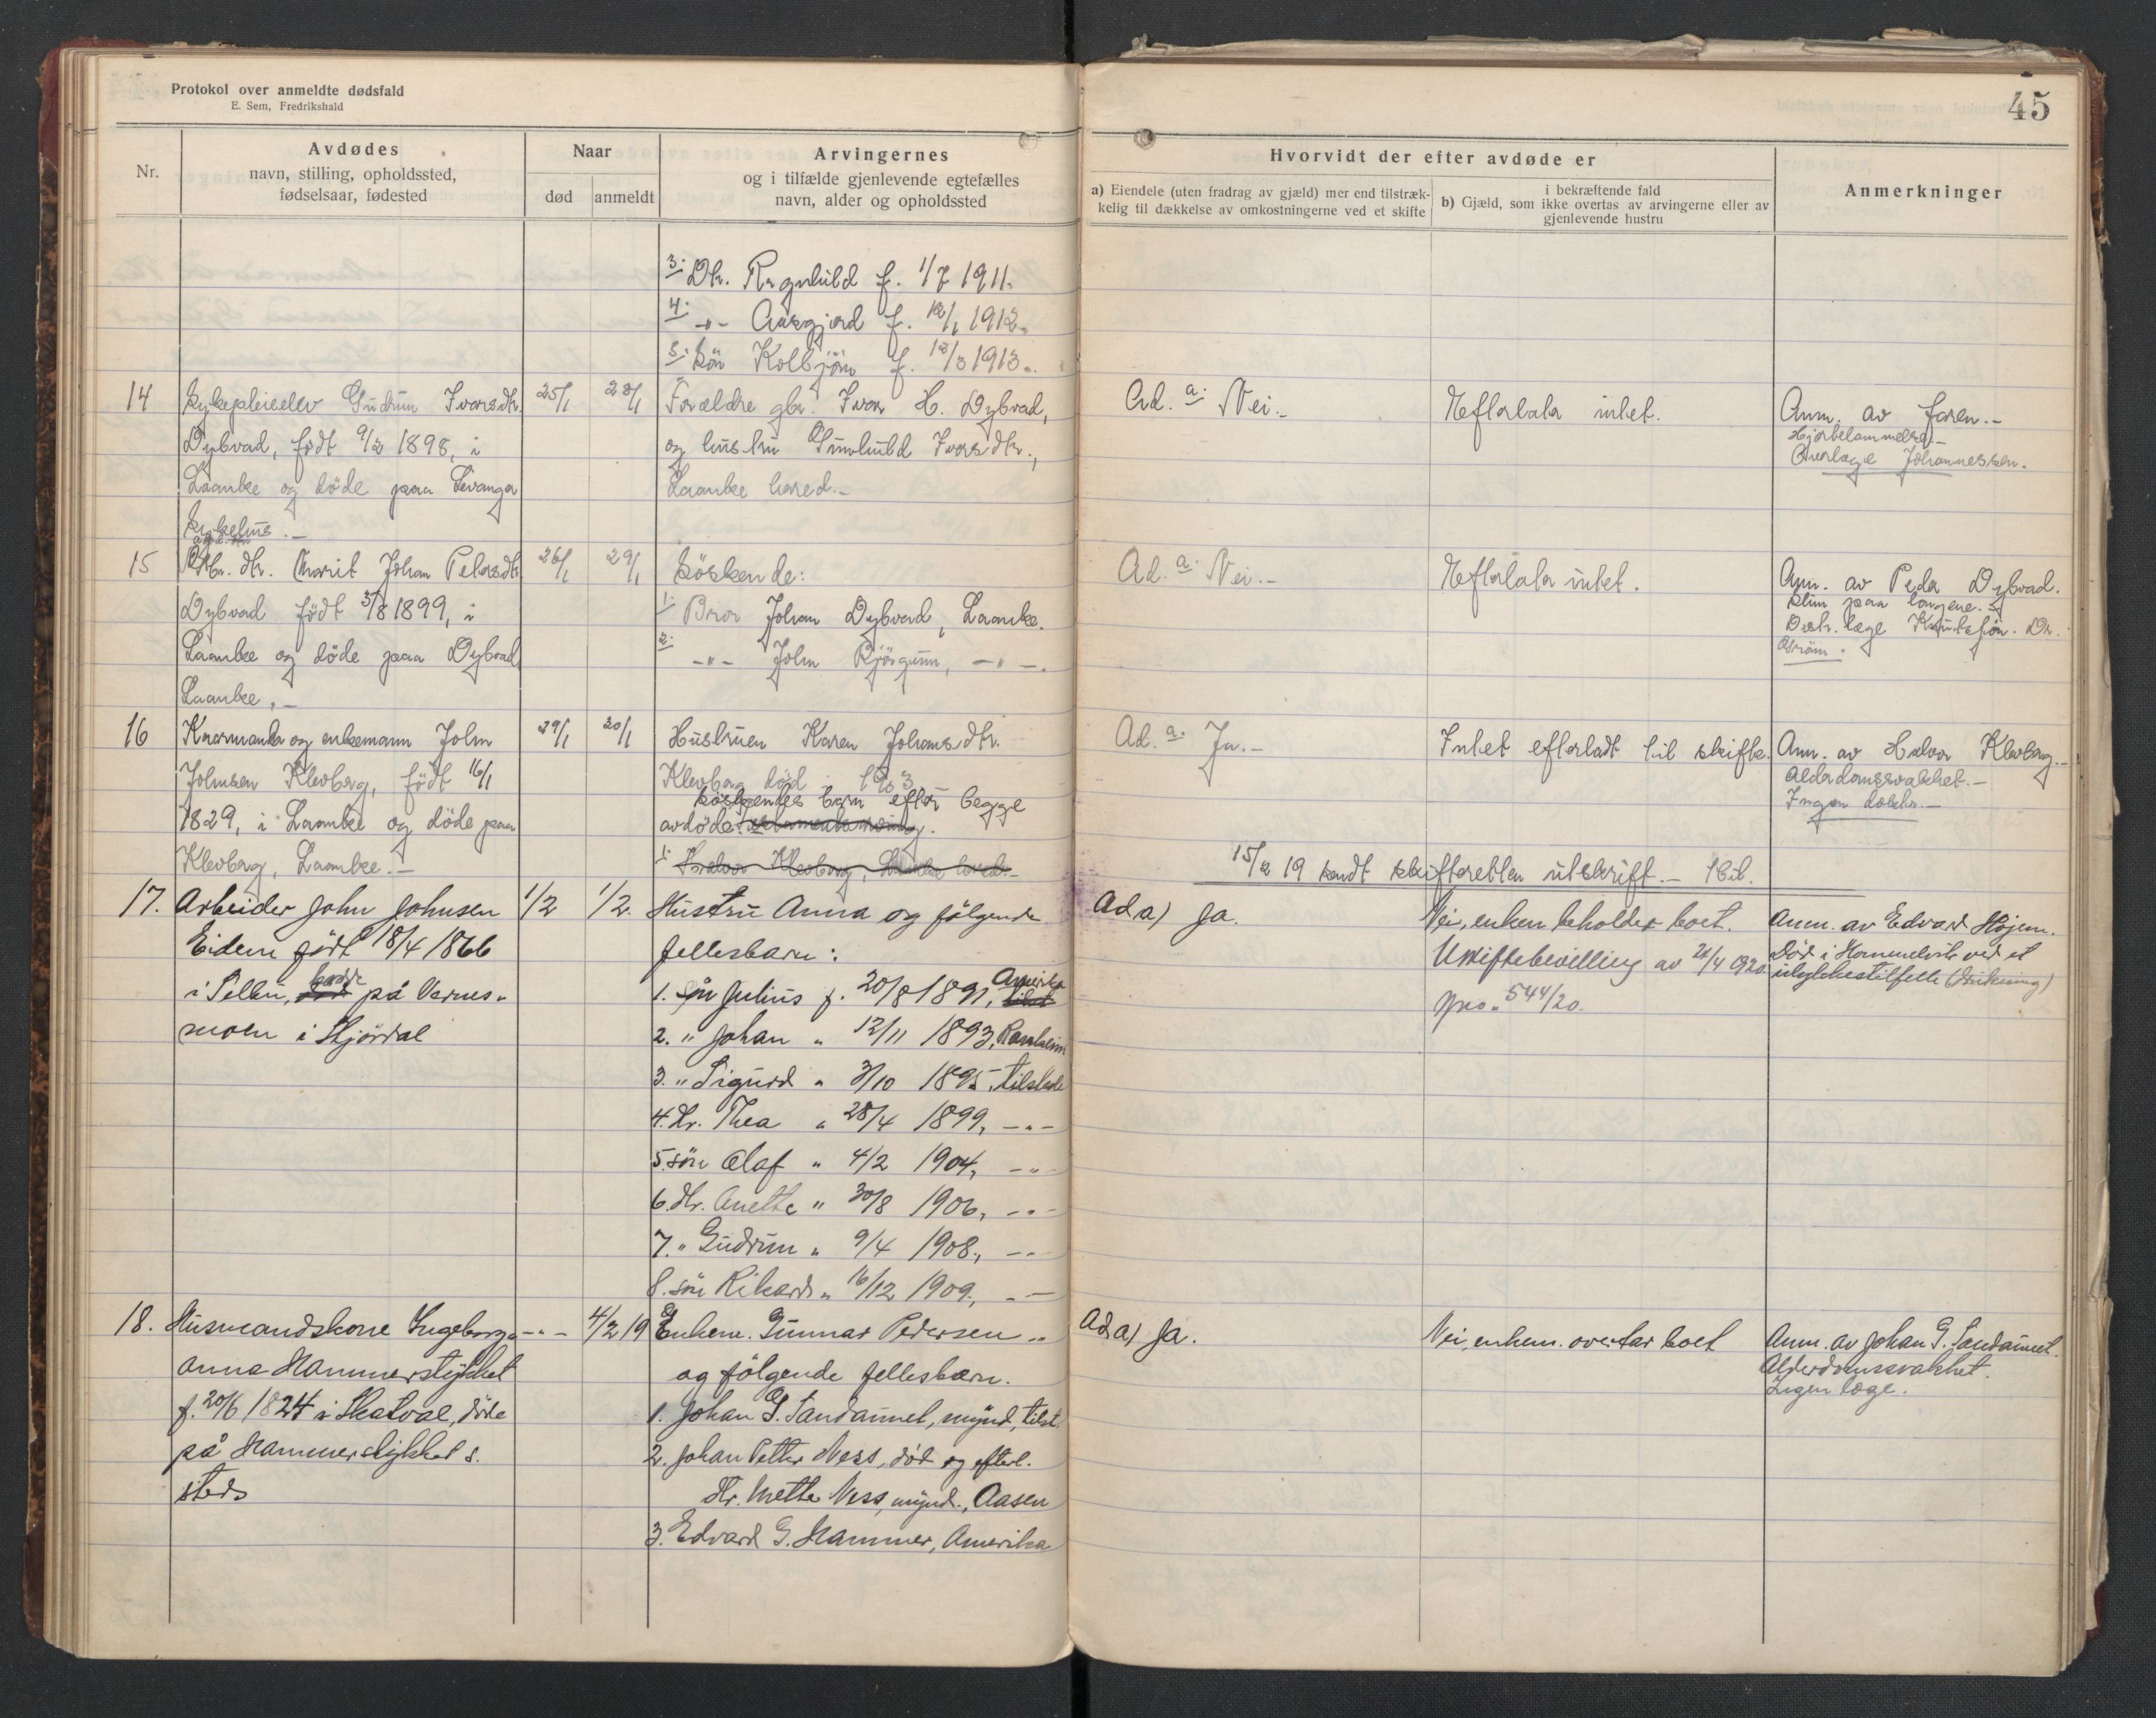 Protokol over anmeldte dødsfald
E. Sem, Fredrikshald
45
Nr.
Avdødes
navn, stilling, opholdssted,
fødselsaar, fødested
Naar
død
anmeldt
Arvingernes
og i tilfælde gjenlevende egtefælles
navn, alder og opholdssted
Hvorvidt der efter avdøde er
a) Eiendele (uten fradrag av gjæld) mer end tilstræk-
kelig til dækkelse av omkostningerne ved et skifte
i bekræftende fald
b) Gjæld, som ikke overtas av arvingerne eller av
gjenlevende hustru
Anmerkninger
3: Dtr. Ragnhild f. 1/7 1911.
4: -"- Aasgjerd f. 12/1 1912.
5: Søn Kolbjörn f. 13/3 1913.
14 Sykepleieelev Gudrun Ivarsdtr. 25/1 28/1 Forældre gbr. Ivar H. Dybvad, Ad. a: Nei.- Efterlater intet. Anm. av faren.-
Dybvad, født 9/2 1898, i og hustru Gunhild Ivarsdtr., Hjertelammelse.-
Laanke og döde paa Levanger Laanke hered.- Overlæge Johannessen.
Sykehus.-
15 Gbr. dtr. Marit Johan Petersdtr. 26/1 29/1 Söskende: Ad. a: Nei.- Efterlater intet. Anm. av Peder Dybvad.
Dybvad född 3/8 1899, i 1: Bror Johan Dybvad, Laanke. Slim paa lungene.
Laanke og döde paa Dybvad 2: -"- John -"-. Distr. læge Knutsön. Dr.
Laanke.-
16 Kaarmand og enkemann John 29/1 30/1 Hustruen Karen Johansdtr. Ad. a: Ja.- Intet efterladt til skifte. Anm. av Halvor Klevberg.-
Johnsen Klevberg, født 16/1 Klevberg död i 1903 Alderdomssvakhet.-
1829, i Laanke og döde paa Söskendes barn efter begge Ingen doktor.-
Klevberg, Laanke.- avdöde. testamentarving.
1: Halvor Klevberg, Laanke hered.-
15/2 19 sendt skifteretten utskrift.-
17. Arbeider John Johnsen 1/2 1/2. Hustru Anna og følgende Ad a) Ja. Nei, enken beholder boet. Anm. av Edvard Højem.
Eidem født 18/4 1866 fellesbarn: Uskiftebevilling av 26/4 1920. Død i Hommelvik ved et
i Selbu, død på Værnes- 1. søn Julius f. 20/8 1891, Amerika Jno. 544/20. ulykkestilfelle (drukning)
moen i Stjørdal 2. " Johan " 12/11 1893, Ranheim
3. " Sigurd " 3/10 1895, tilstede
4. Dr. Thea " 28/4 1899, -"-
5. søn Olaf " 4/2 1904, -"-
6. dtr. Anette " 30/8 1906, -"-
7. " Gudrun " 9/4 1908, -"-
8. søn Rikard " 16/12 1909, -"-
18. Husmandskone Ingeborg- -"- 4/2 19 Enkem. Gunnar Pedersen Ad a) Ja. Nei, enkem. overtar boet Anm. av Johan G. Sandaunet.
Anna Hammerstykket og følgende fellesbarn. Alderdomssvakhet.
f. 20/6 1824 i Skatval, døde 1. Johan G. Sandaunet, mynd, tilst. Ingen læge.
på Hammerstykket s. 2. Johan Petter Ness, død og efterl.
sted Dtr. Mette Ness, mynd., Aasen
3. Edvard G. Hammer, Amerika